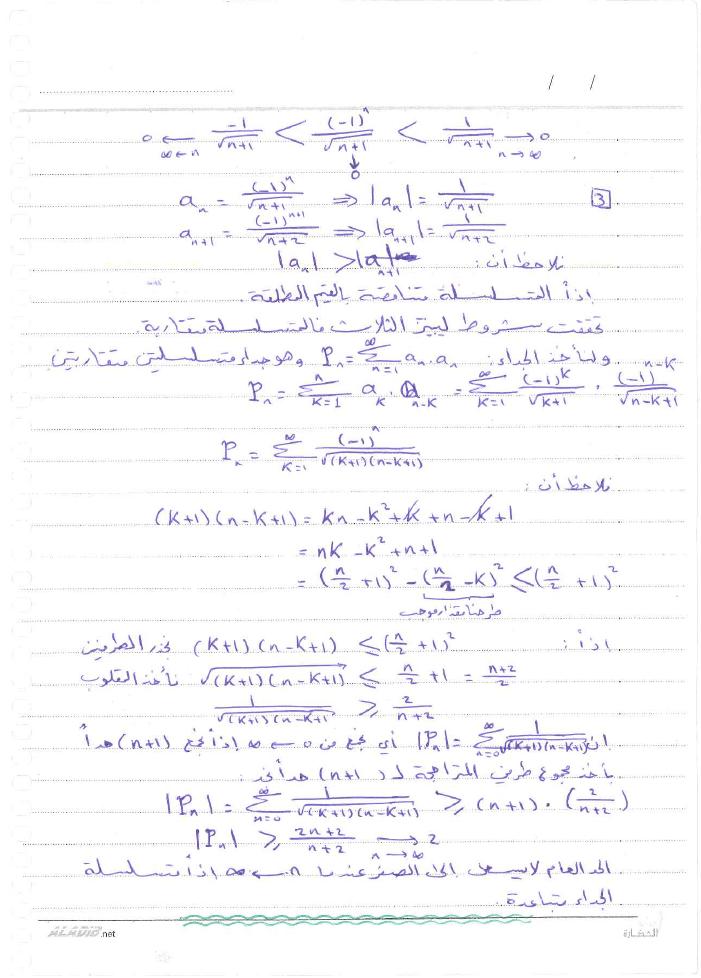 / /
0 ← -1/√(n+1) < (-1)^n/√(n+1) < 1/√(n+1) → 0
∞←n ↓ n→∞
0
[3] a_n = (-1)^n/√(n+1) ⇒ |a_n| = 1/√(n+1)
a_{n+1} = (-1)^{n+1}/√(n+2) ⇒ |a_{n+1}| = 1/√(n+2)
نلاحظ أن: |a_n| > |a_{n+1}|
إذاً المتسلسلة متناقصة بالقيم المطلقة.
تحققت شروط ليبنز الثلاث فالمتسلسلة متقاربة.
ولنأخذ الجداء: P_n = Σ_{n=1}^{∞} a_n . a_n وهو جداء متسلسلتين متقاربتين
P_n = Σ_{K=1}^{n} a_K . a_{n-K} = Σ_{K=1}^{∞} (-1)^K/√(K+1) . (-1)^{n-K}/√(n-K+1)
P_n = Σ_{K=1}^{∞} (-1)^n/√((K+1)(n-K+1))
نلاحظ أن:
(K+1)(n-K+1) = Kn - K² + K + n - K + 1
= nK - K² + n + 1
= (n/2 + 1)² - (n/2 - K)² ≤ (n/2 + 1)²
طرحنا مقدار موجب
إذاً: (K+1)(n-K+1) ≤ (n/2 + 1)² بجذر الطرفين
√((K+1)(n-K+1)) ≤ n/2 + 1 = (n+2)/2 نأخذ القلوب
1/√((K+1)(n-K+1)) ≥ 2/(n+2)
إن |P_n| = Σ_{n=0}^{∞} 1/√((K+1)(n-K+1)) أي نجمع من 0 ← ∞ إذاً نجمع (n+1) حداً
نأخذ مجموع طرفي المتراجحة لـ (n+1) حداً نجد:
|P_n| = Σ_{n=0}^{∞} 1/√((K+1)(n-K+1)) ≥ (n+1) . (2/(n+2))
|P_n| ≥ (2n+2)/(n+2) → 2
n→∞
الحد العام لا يسعى إلى الصفر عندما n ← ∞ إذاً متسلسلة
الجداء متباعدة.
ALADIB.net
الحضارة